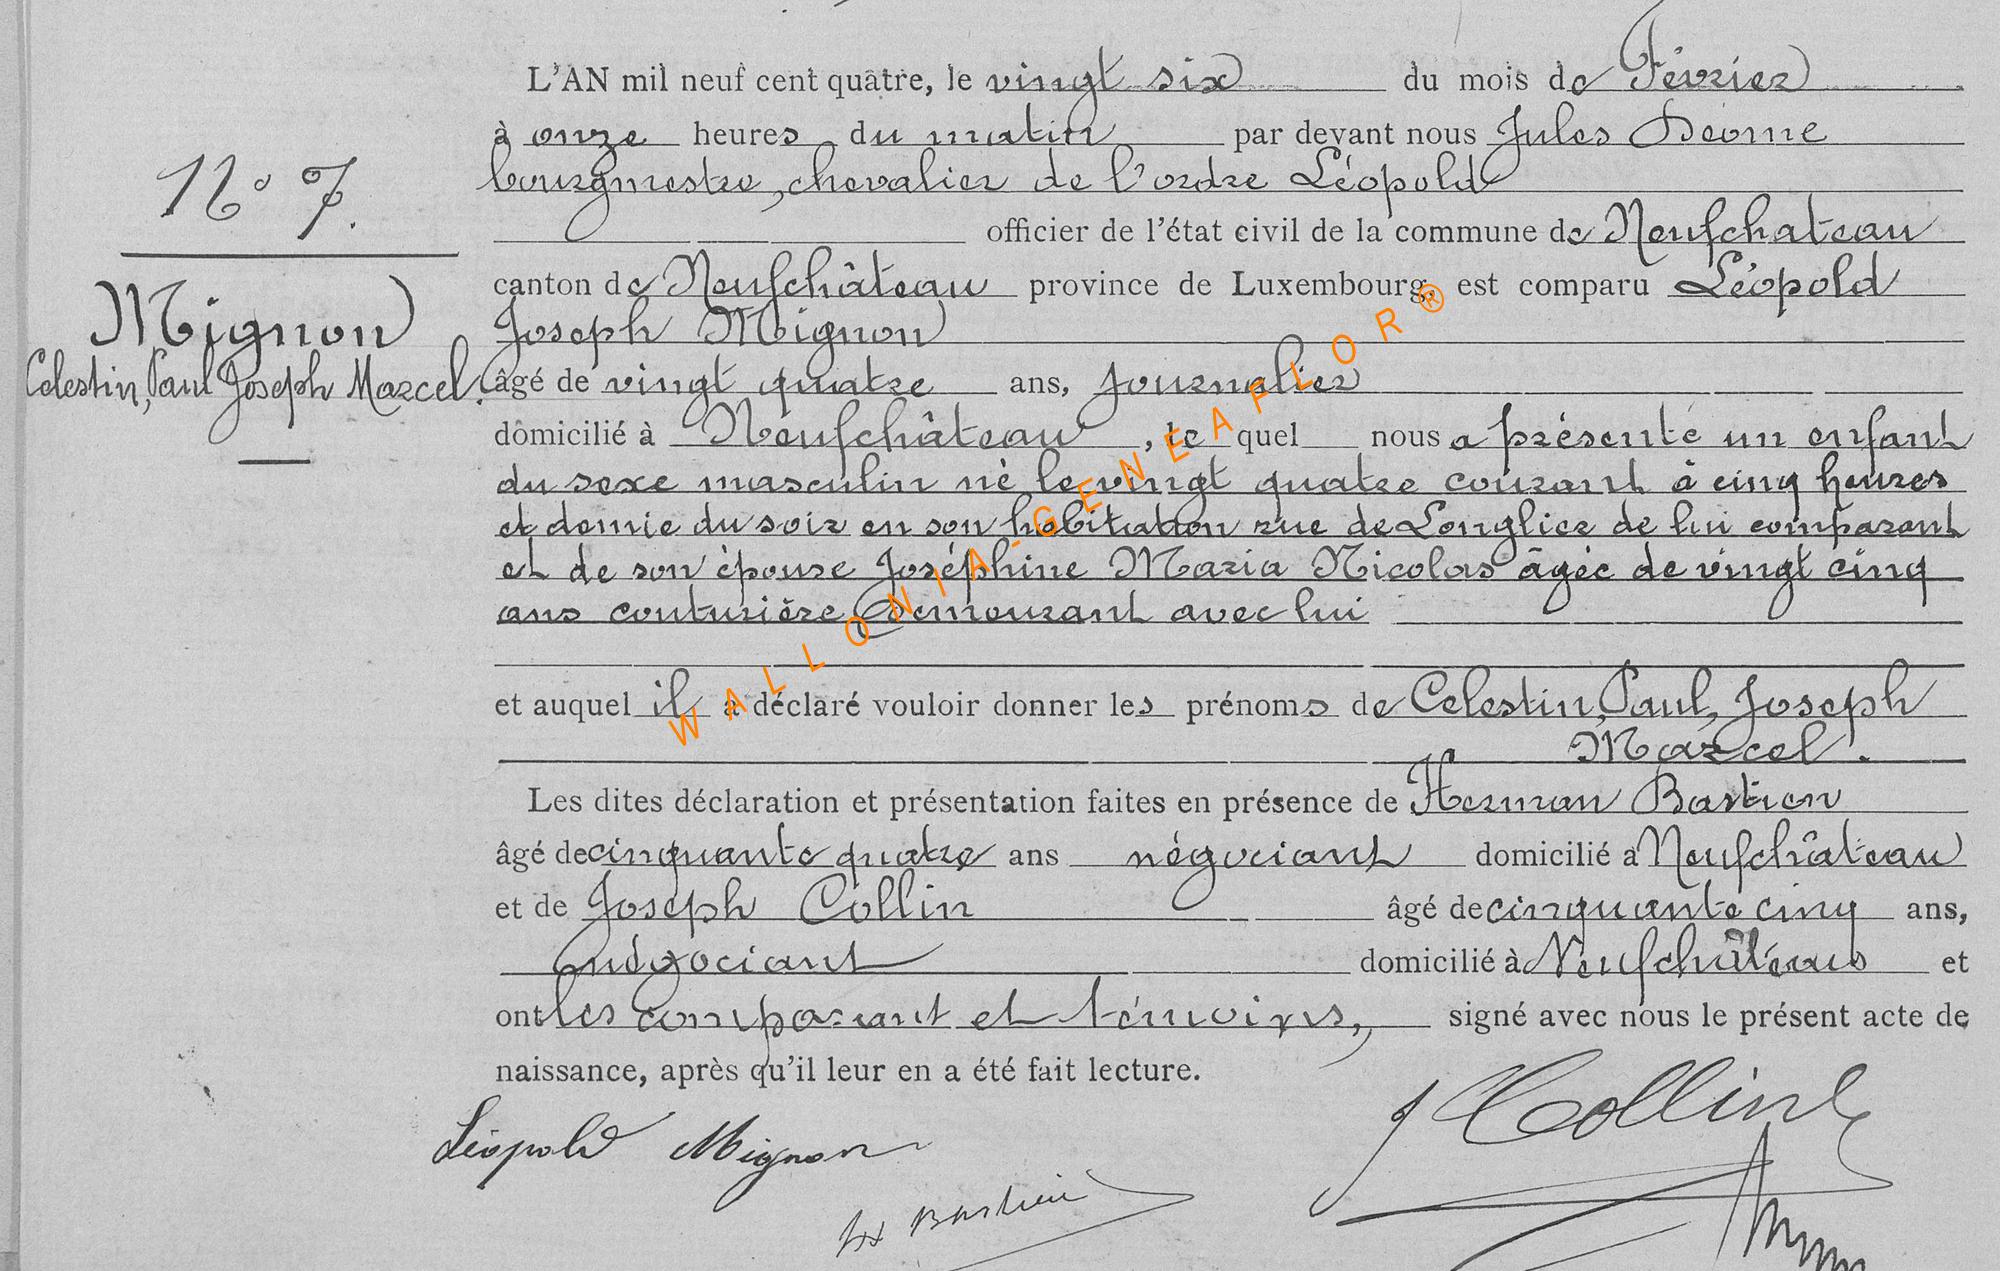 L'AN mil neuf cent quatre, le vingt six du mois de Février
à onze heures du matin par devant nous Jules
bourgmestre, chevalier de l'ordre Léopold
N° 7.
officier de l'état civil de la commune de Neufchateau
canton de Neufchâteau province de Luxembourg, est comparu Léopold
Mignon
Joseph Mignon
Celestin, Paul Joseph Marcel.
âgé de vingt quatre ans, journalier
domicilié à Neufchâteau, le quel nous a présenté un enfant
du sexe masculin né le vingt quatre courant à cinq heures
et demie du soir en son habitation rue de Longlier de lui comparant
et de son épouse Joséphine Maria Nicolas âgée de vingt cinq
ans couturière demeurant avec lui
et auquel il a déclaré vouloir donner les prénoms de Celestin, Paul, Joseph
Marcel.
Les dites déclaration et présentation faites en présence de Herman Bastien
âgé de cinquante quatre ans négociant domicilié a Neufchâteau
et de Joseph Collin âgé de cinquante cinq ans,
négociant domicilié à Neufchâteau et
ont les comparant et témoins, signé avec nous le présent acte de
naissance, après qu'il leur en a été fait lecture.
J Collin
Léopold Mignon
H Bastien
WALLONIA-GENEAFLOR®